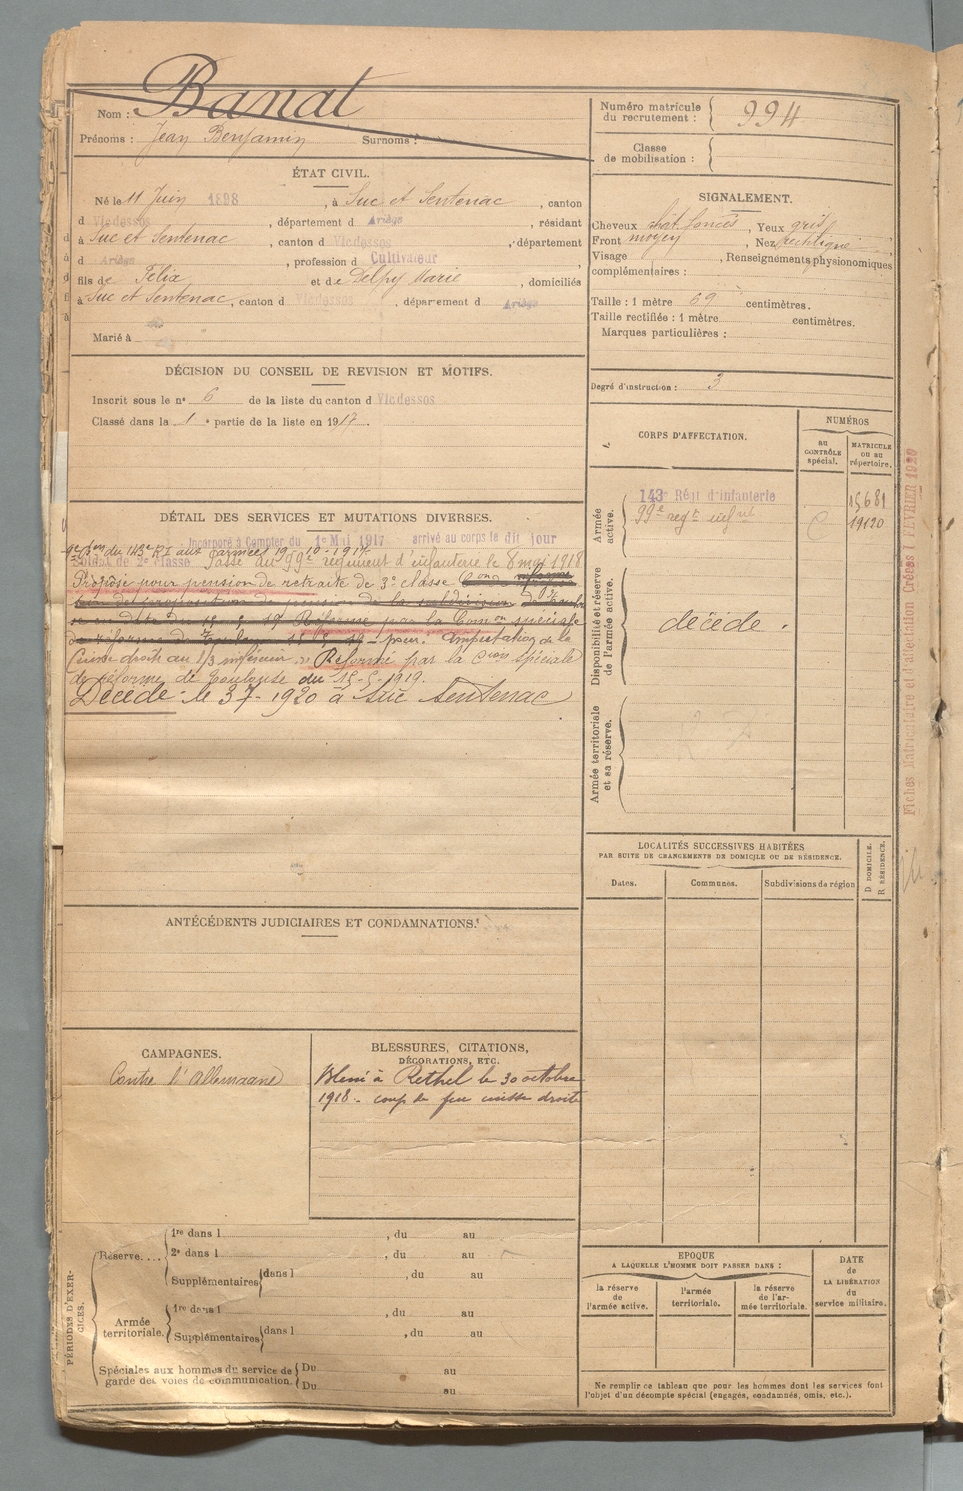 Nom : Banat
Prénoms : Jean Benjamin Surnoms :
ÉTAT CIVIL.
Né le 11 Juin 1898, à Suc et Sentenac, canton
d Vicdessos, département d Ariège, résidant
à Suc et Sentenac, canton d Vicdessos, département
d Ariège, profession d Cultivateur
fils de Félix et de Delpy Marie, domiciliés
à Suc et Sentenac, canton d Vicdessos, département d Ariège
Marié à
DÉCISION DU CONSEIL DE REVISION ET MOTIFS.
Inscrit sous le n° 6 de la liste du canton d Vicdessos
Classé dans la 1e partie de la liste en 1917.
DÉTAIL DES SERVICES ET MUTATIONS DIVERSES.
Incorporé à Compter du 1er Mai 1917 arrivé au corps le dit jour
du 143e RI aux armées 19-10-1917
Soldat de 2e Classe Passé au 99e régiment d'infanterie le 8 mai 1918
Proposé pour pension de retraite de 3e classe
Réforme par la Comon spéciale
de réforme de Toulouse
Amputation de la
Cuisse droite au 1/3 inférieur. " Réformé par la Cion spéciale
de réforme de Toulouse du 15-5-1919.
Décédé le 3-7-1920 à Suc Sentenac
ANTÉCÉDENTS JUDICIAIRES ET CONDAMNATIONS.
CAMPAGNES.
Contre l'Allemagne
BLESSURES, CITATIONS,
DÉCORATIONS, ETC.
Blessé à Rethel le 30 octobre
1918 - coup de feu cuisse droite
PÉRIODES D'EXERCICES.
Réserve....
1re dans l , du au
2e dans l , du au
Supplémentaires dans l , du au
Armée territoriale.
1re dans l , du au
Supplémentaires dans l , du au
Spéciales aux hommes du service de garde des voies de communication.
Du au
Du au
Numéro matricule
du recrutement : 994
Classe
de mobilisation :
SIGNALEMENT.
Cheveux chat. foncés, Yeux gris
Front moyen, Nez rectiligne
Visage , Renseignements physionomiques
complémentaires :
Taille : 1 mètre 69 centimètres.
Taille rectifiée : 1 mètre centimètres.
Marques particulières :
Degré d'instruction : 3
CORPS D'AFFECTATION.
NUMÉROS
au
CONTRÔLE
spécial.
MATRICULE
OU AU
répertoire.
Armée
active.
143e Régt d'infanterie 15681
99e regt infrie 19120
Disponibilité et réserve
de l'armée active.
décédé.
Armée territoriale
et sa réserve.
LOCALITÉS SUCCESSIVES HABITÉES
PAR SUITE DE CHANGEMENTS DE DOMICILE OU DE RÉSIDENCE.
Dates.
Communes.
Subdivisions de région
D. DOMICILE.
R. RÉSIDENCE.
EPOQUE
A LAQUELLE L'HOMME DOIT PASSER DANS :
la réserve
de
l'armée active.
l'armée
territoriale.
la réserve
de l'ar-
mée territoriale.
DATE
de
LA LIBÉRATION
du
service militaire.
Ne remplir ce tableau que pour les hommes dont les services font
l'objet d'un décompte spécial (engagés, condamnés, omis, etc.).
Fiches Matriculaire et d'affectation Créées 1 FEVRIER 1920